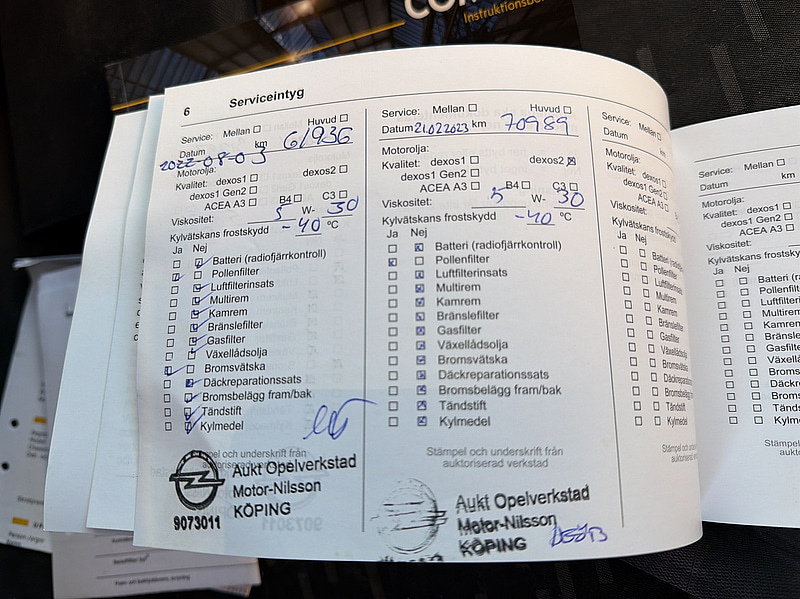 Instruktionsbo
6 Serviceintyg
Service: Mellan Huvud
Datum km 61936
2022-08-03
Motorolja:
Kvalitet: dexos1 dexos2
dexos1 Gen2
ACEA A3 B4 C3
Viskositet: 5 W- 30
Kylvätskans frostskydd -40 °C
Ja Nej
Batteri (radiofjärrkontroll)
Pollenfilter
Luftfilterinsats
Multirem
Kamrem
Bränslefilter
Gasfilter
Växellådsolja
Bromsvätska
Däckreparationssats
Bromsbelägg fram/bak
Tändstift
Kylmedel
Aukt Opelverkstad
Motor-Nilsson
KÖPING
9073011
Service: Mellan Huvud
Datum 21.02.2023 km 70989
Motorolja:
Kvalitet: dexos1 dexos2
dexos1 Gen2
ACEA A3 B4 C3
Viskositet: 5 W- 30
Kylvätskans frostskydd -40 °C
Ja Nej
Batteri (radiofjärrkontroll)
Pollenfilter
Luftfilterinsats
Multirem
Kamrem
Bränslefilter
Gasfilter
Växellådsolja
Bromsvätska
Däckreparationssats
Bromsbelägg fram/bak
Tändstift
Kylmedel
Stämpel och underskrift från
auktoriserad verkstad
Aukt Opelverkstad
Motor-Nilsson
KÖPING
Service: Mellan
Datum
Motorolja:
Kvalitet: dexos1
dexos1 Gen2
ACEA A3
Viskositet:
Kylvätskans frostskydd
Ja Nej
Batteri (radiofj
Pollenfilter
Luftfilterins
Multirem
Kamrem
Bränslefilter
Gasfilter
Växellådsolja
Bromsvätska
Däckreparatio
Bromsbelägg
Tändstift
Kylmedel
Stämpel och unders
auktoriserad
Service: Mellan
Datum km
Motorolja:
Kvalitet: dexos1
dexos1 Gen2
ACEA A3
Viskositet:
Kylvätskans frostsky
Ja Nej
Batteri (rad
Pollenfilte
Luftfilteri
Multirem
Kamrem
Bränslef
Gasfilte
Växellå
Bromsv
Däckre
Bromsb
Tändst
Kylme